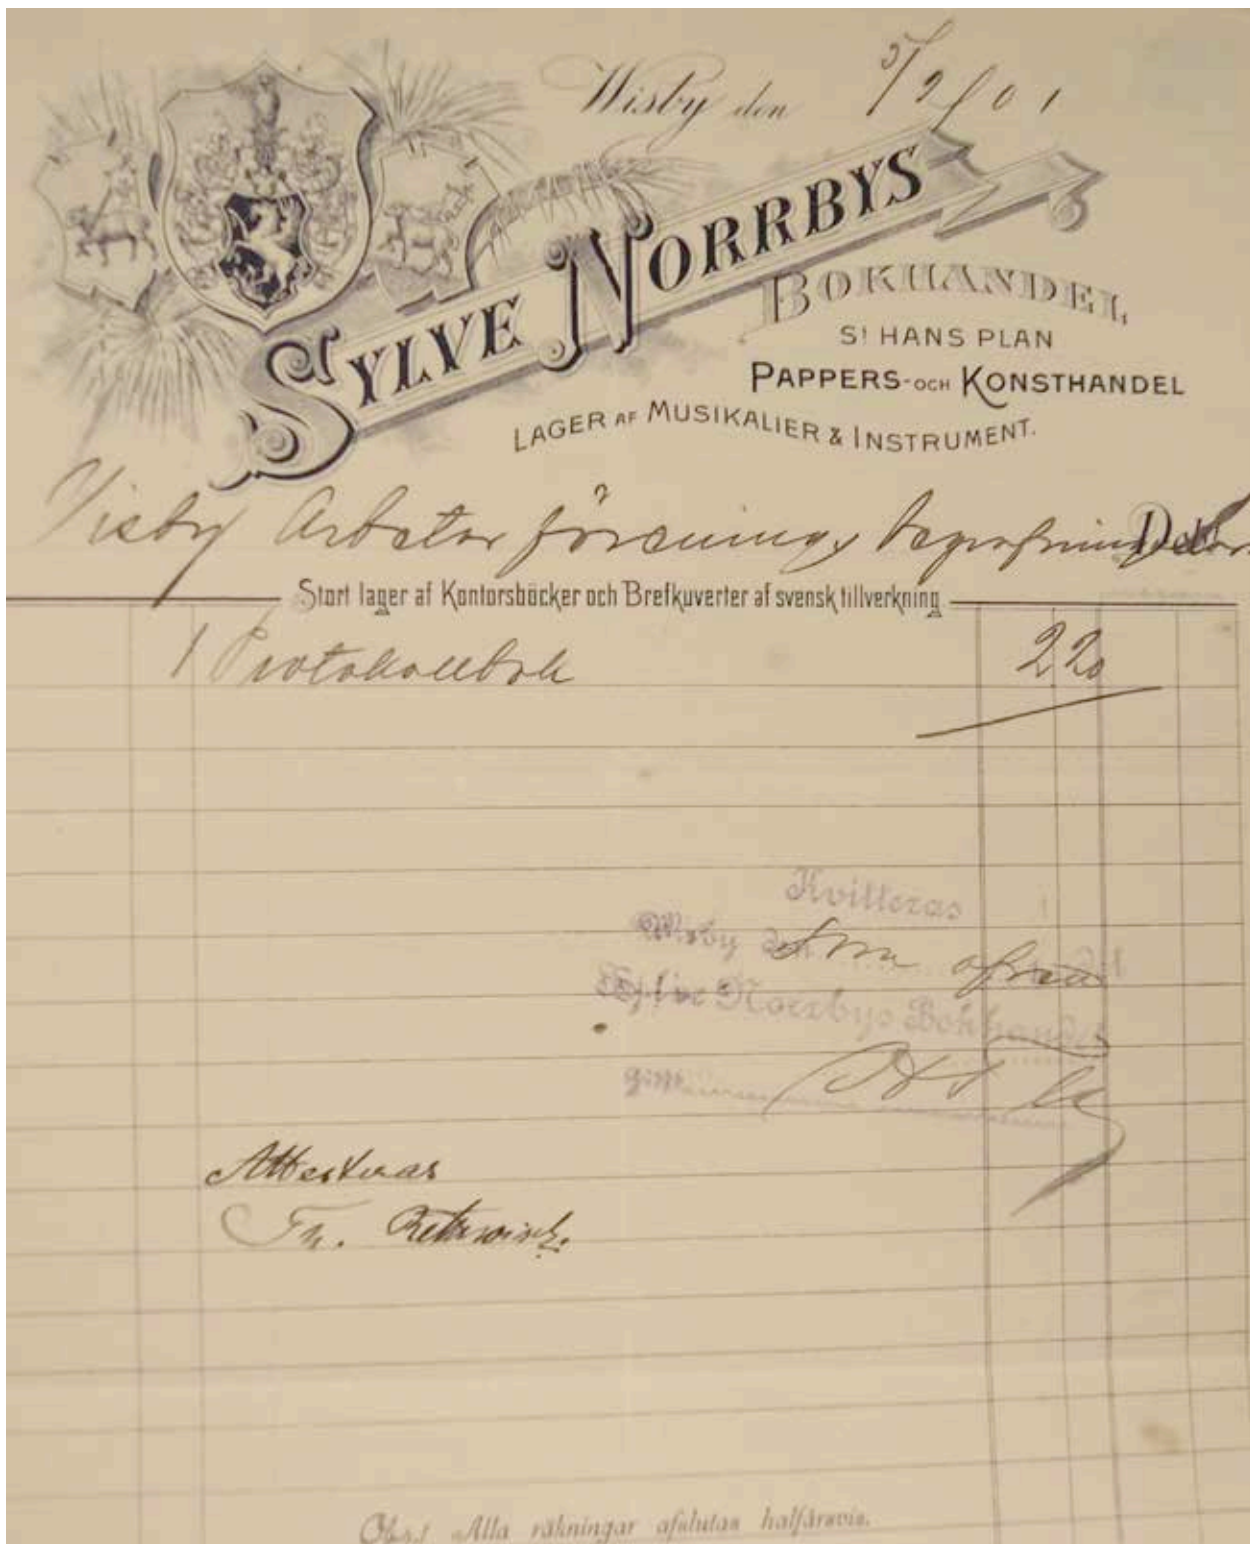 Wisby den 5/2 01
SYLVE NORRBYS
BOKHANDEL
ST HANS PLAN
PAPPERS- OCH KONSTHANDEL
LAGER AF MUSIKALIER & INSTRUMENT.
Visby Arbetar förenings Begrafnings Debet
Stort lager af Kontorsböcker och Brefkuverter af svensk tillverkning
1 Protokollbok 2 20
Kvitteras
Wisby den Som ofvan
Sylve Norrbys Bokhandel
Attesteras
Th.
Obs.! Alla räkningar afslutas halfårsvis.